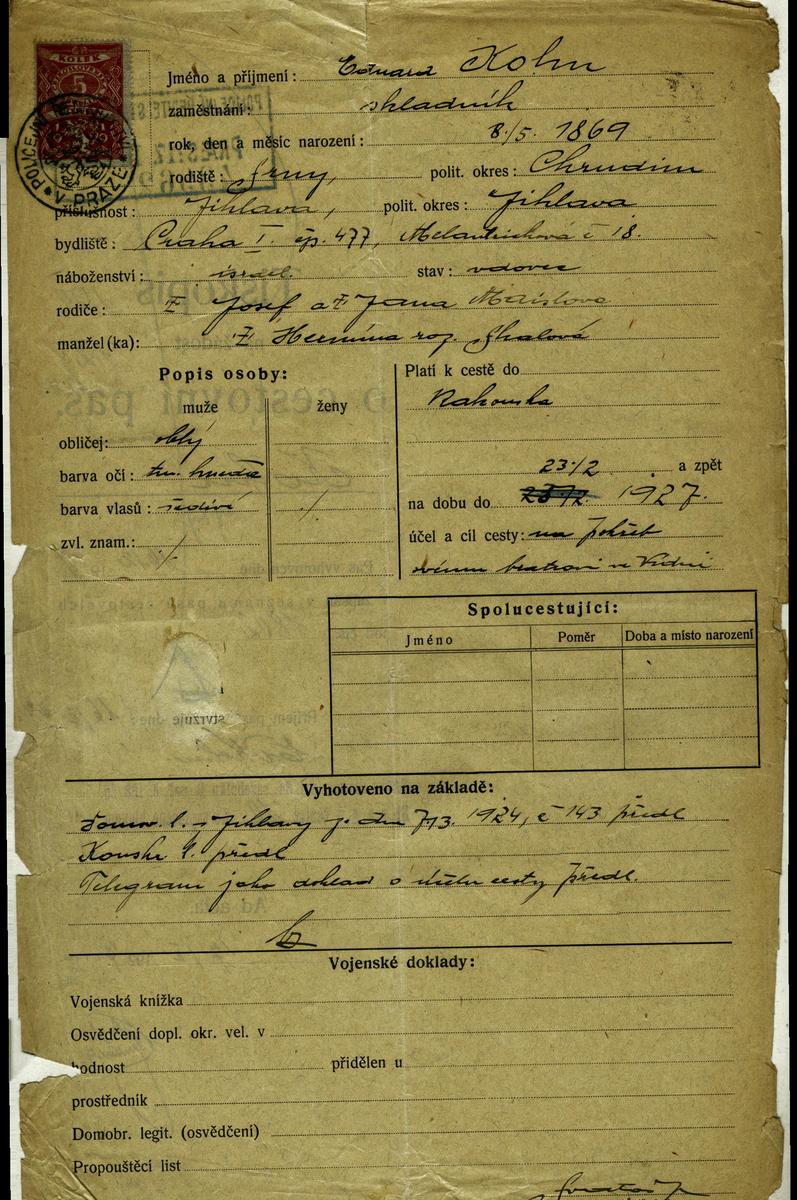 KOLEK
5
POLICEJNÍ
V PRAZE
Jméno a příjmení: Eduard Kohn
zaměstnání: skladník
rok, den a měsíc narození: 8./5. 1869
rodiště: polit. okres: Chrudim
příslušnost: Jihlava, polit. okres: Jihlava
bydliště: Praha I. čp. 477, Melantrichova č 18.
náboženství: israel. stav: vdovec
rodiče: Josef a Jana
manžel (ka): Hermína roz.
Popis osoby:
muže ženy
obličej: oblý
barva očí: tm. hnědé
barva vlasů: šedivé /
zvl. znam.: /
Platí k cestě do
Rakouska
23/2 a zpět
na dobu do 1927.
účel a cíl cesty: na pohřeb
svému bratrovi ve Vídni
Spolucestující:
Jméno Poměr Doba a místo narození
Vyhotoveno na základě:
Domov. l. z Jihlavy ze dne 7./3. 1924, č 143 předl
předl
Telegram jako doklad o účelu cesty předl.
Vojenské doklady:
Vojenská knížka
Osvědčení dopl. okr. vel. v
hodnost přidělen u
prostředník
Domobr. legit. (osvědčení)
Propouštěcí list